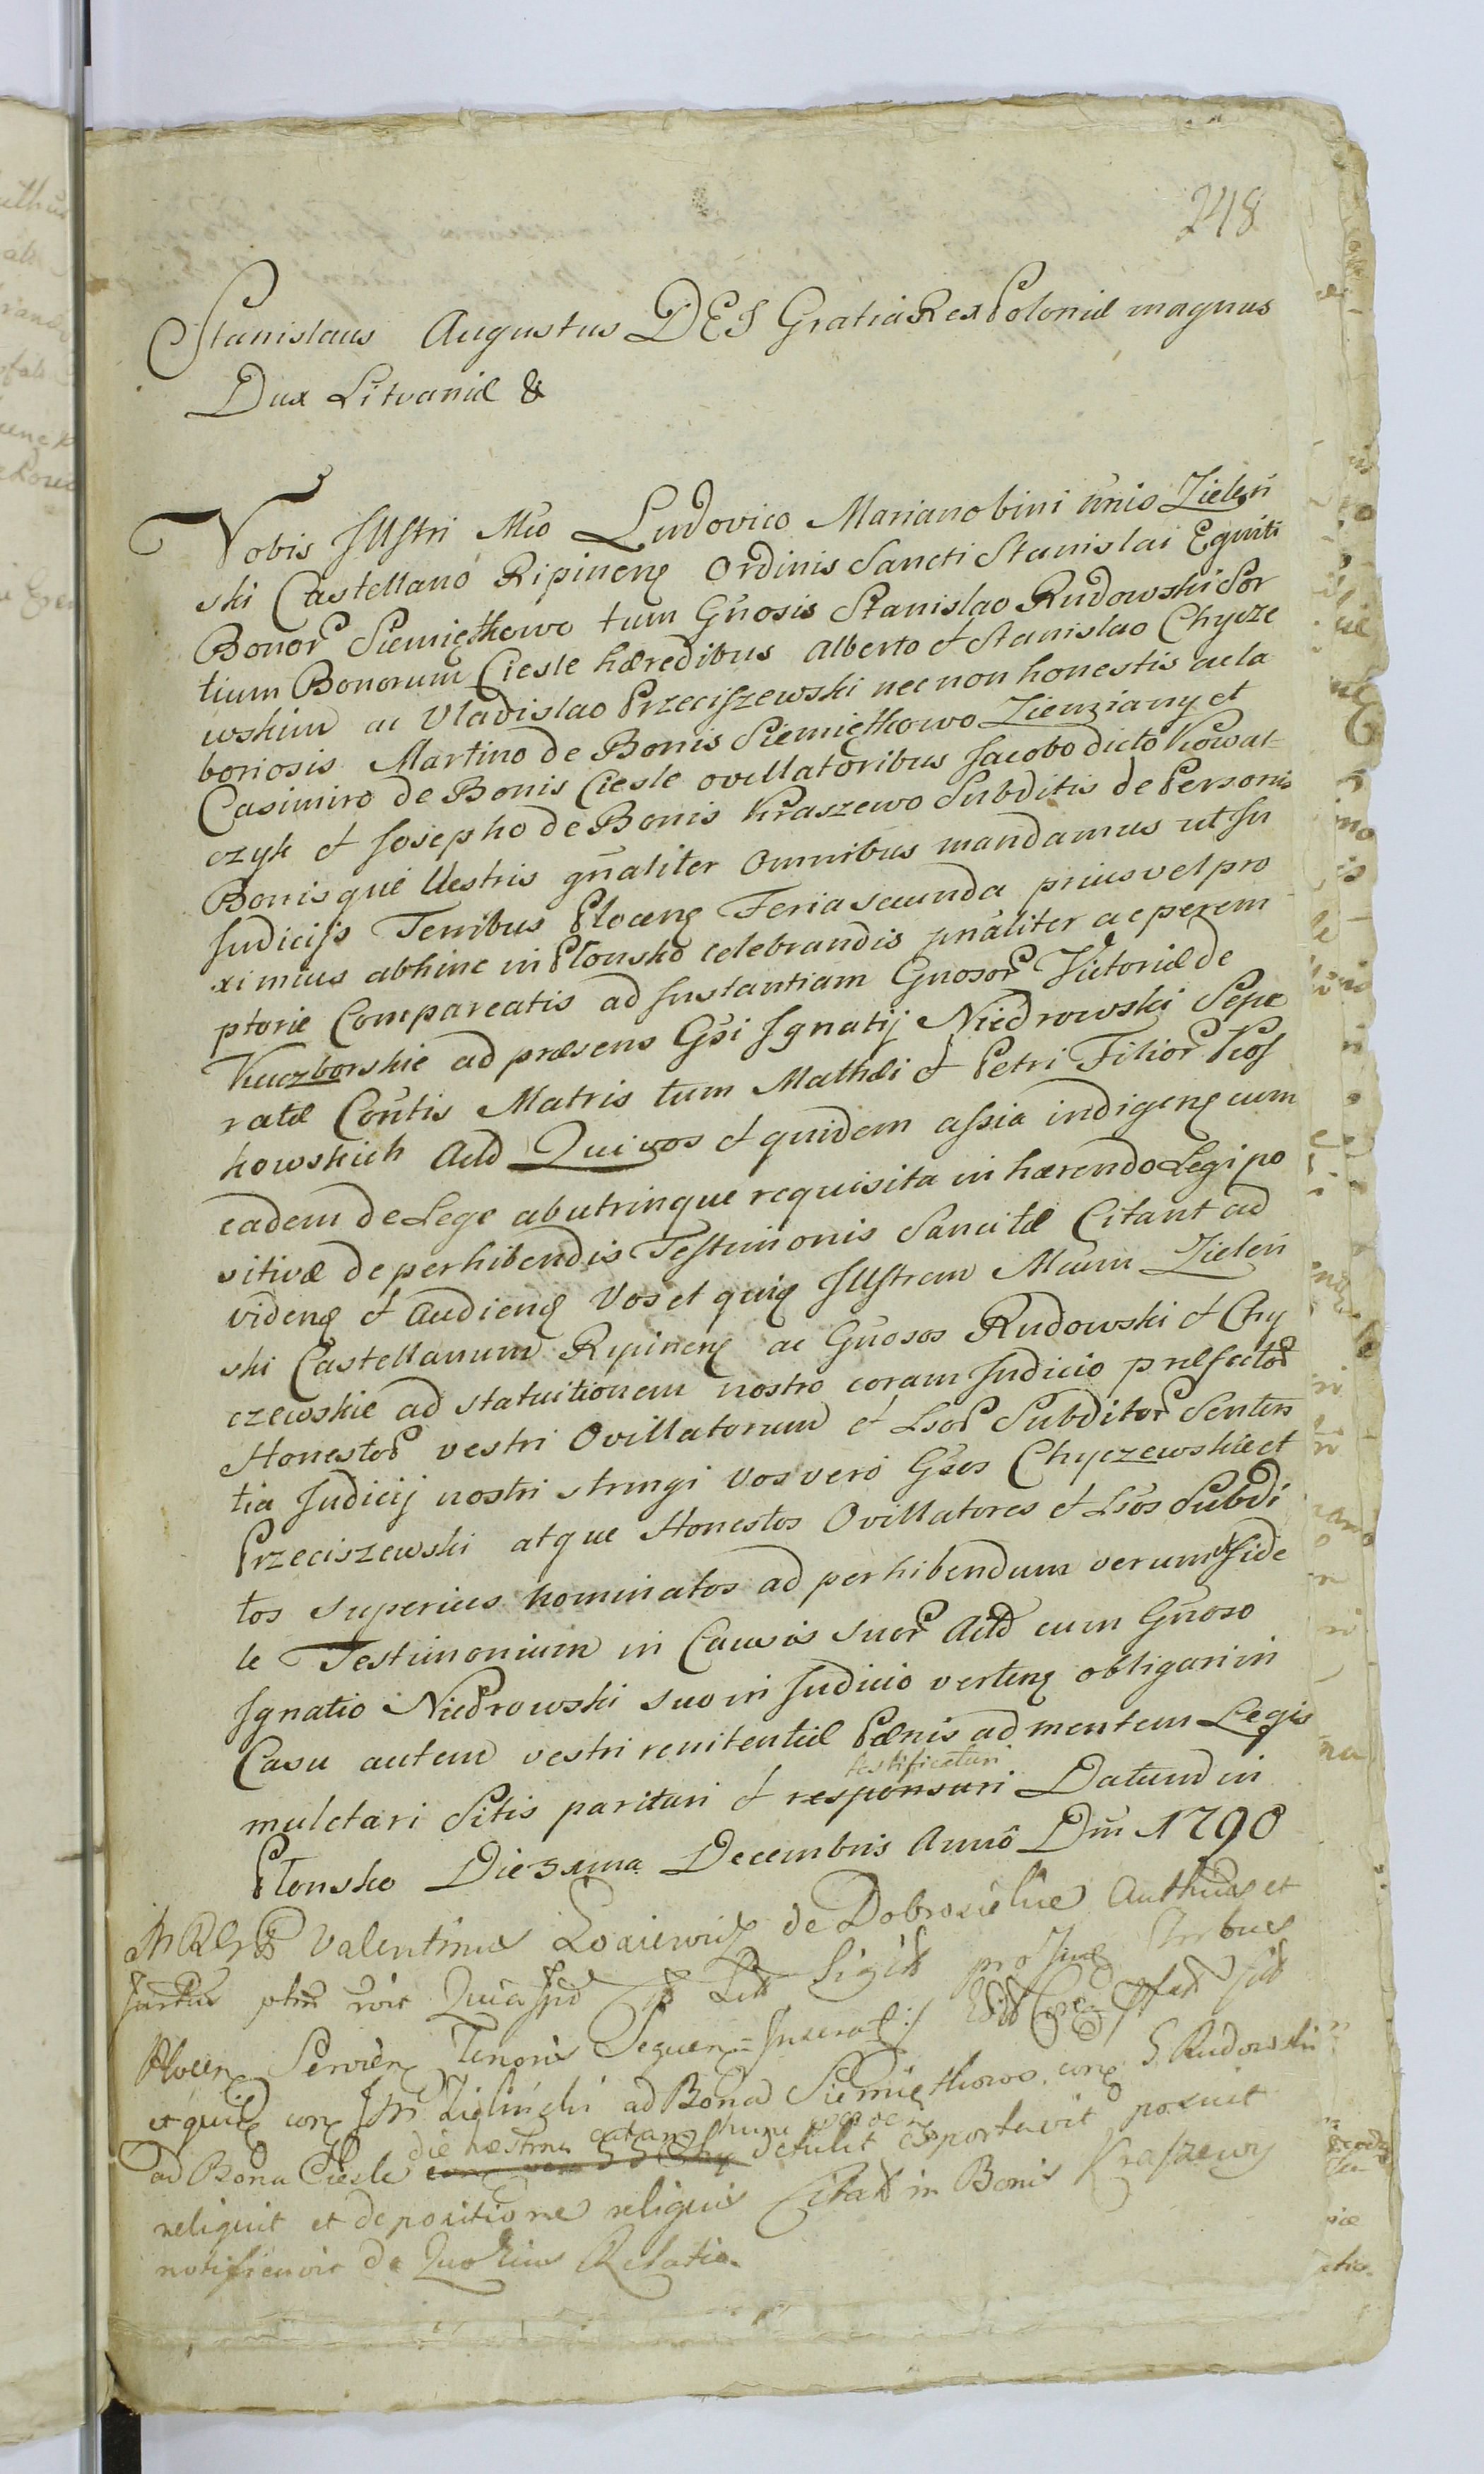 248
Stanislaus Augustus DEI Gratia Rex Poloniæ magnus
Dux Litvaniæ &
Vobis Illstri Mco Ludovico Mariano bini unio Zieleń
ski Castellano Ripinenq Ordinis Sancti Stanislai Equiti
Bonor Siemiętkowo tum Gnosis Stanislao Rudowski Sor
tium Bonorum Ciesle hæredibus Alberto et Stanislao Chycze
wskim ac Vladislao Przeciszewski nec non honestis ac la
boriosis Martino de Bonis Siemiętkowo Zienziany et
Casimiro de Bonis Ciesle ovillatoribus Jacobo dicto Kowal
czyk et Josepho de Bonis Kraszewo Subditis de Personis
Bonisque Vestris gnaliter Omnibus mandamus ut In
Judicijs Terribus Plocenq Feria secunda prius vel pro
ximius abhinc in Płonsko celebrandis pnaliter ac perem
ptorie Compareatis ad Instantiam Gnosor Victoriæ de
Kuczborskie ad præsens Gsi Ignatij Niedrowski Sepa
ratæ Contis Matris tum Mathæi et Petri Filior Kos
kowskich Actd Qui vos et quidem assia indigenq cum
eadem de Lege ab utrinque requisita in hærendo Legi po
sitivæ de perhibendis Testimonis Sancitæ Citant ad
videnq et Audienq Vos et quiq Illstrem Mcum Zieleń
ski Castellanum Rypinenq ac Gnosos Rudowski et Chy
czewskie ad statuitionem nostro coram Judicio præfector
Honestor vestri Ovillatorum et Lsor Subditor Senten
tia Judicij nostri stringi Vos vero Gsos Chyczewskie et
Przeciszewski atque Honestos Ovillatores et Lsos Subdi
tos superius nominatos ad perhibendum verum et fide
le Testimonium in Causis suor Actd cum Gnoso
Ignatio Niedrowski suo in Judicio vertenq obligari in
Casu autem vestri renitentiæ Pænis ad mentem Legis
mulctari Sitis parituri et responsuri Datum in
testificaturi
Płonsko Die 3xma Decembris Anno Dni 1790
Valentinus de Dobrosielice Authus et
Quia
Plocen Servien Tenoris Sequen = Inserat :/
et quiq conq Zieliński ad Bona Siemiętkowo conq S Rudowski
ad Bona Ciesle die hæstrna detulit et portavit posuit
reliquit et de positione reliquis Citat in Bonis Kraszewy
notificavit de Quo Eius Relatio.